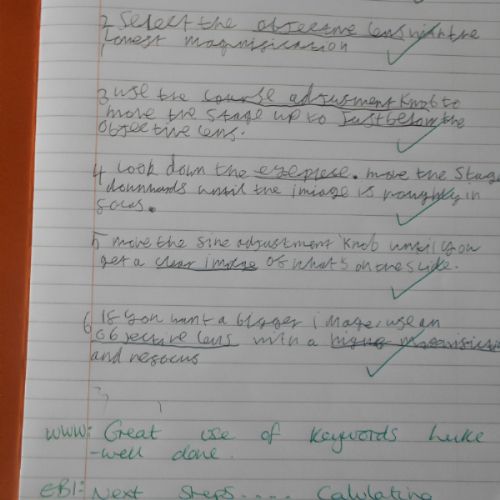 2 Select the objective lens with the
lowest magnisication
3 use the course adjusment knob to
move the stage up to just below the
objective lens.
4 Look down the eyepiese. move the stage
downwards until the imiage is roughly in
socus.
5 move the sine adjustment knob until you
get a clear image of what's on the slide.
6 If you want a bigger image, use an
objective lens with a higher magnisication
and resocus
WWW: Great use of keywords Luke
- well done.
EBI: Next Steps..... Calulating